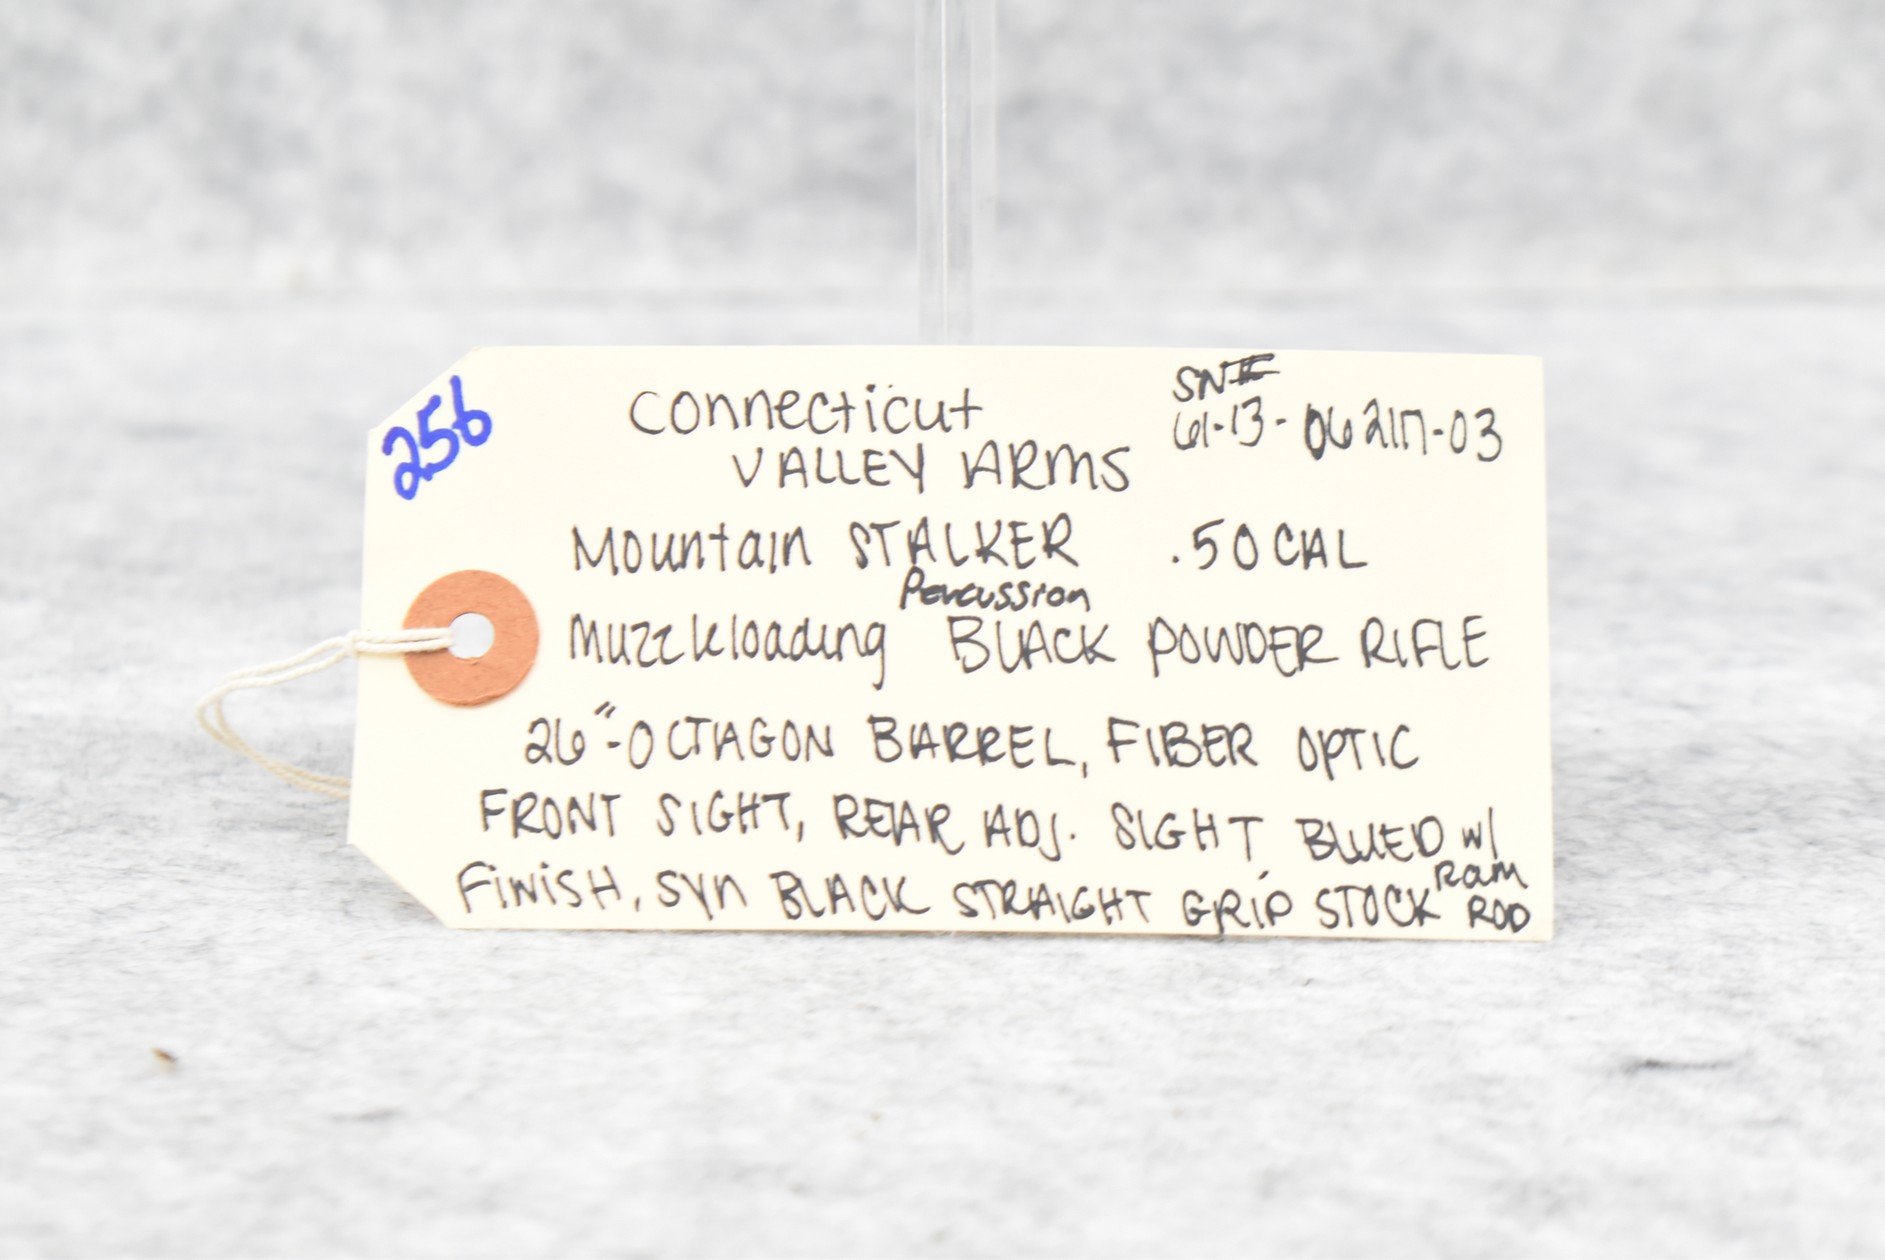 256
Connecticut
VALLEY ARMS
SN#
61-13-062117-03
Mountain STALKER .50 CAL
Percussion
Muzzleloading BLACK POWDER RIFLE
26"-OCTAGON BARREL, FIBER OPTIC
FRONT SIGHT, REAR ADJ. SIGHT BLUED w/
FINISH, SYN BLACK STRAIGHT GRIP STOCK Ram
ROD